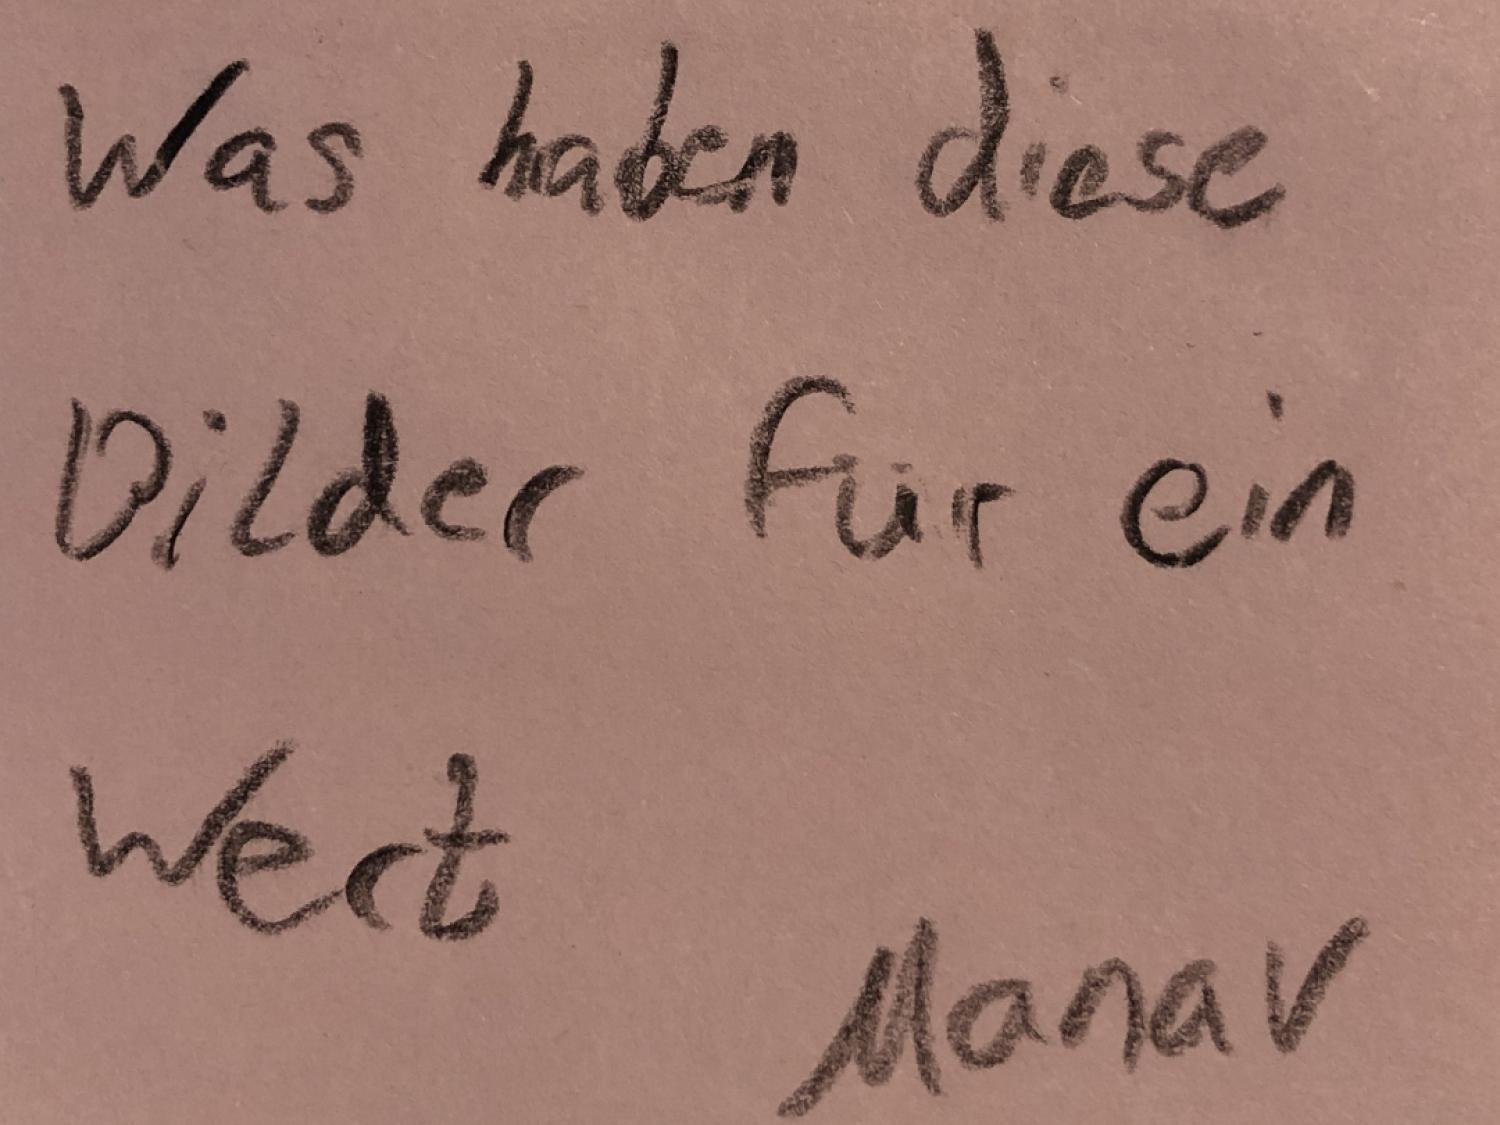 Was haben diese
Bilder für ein
Wert
Manav